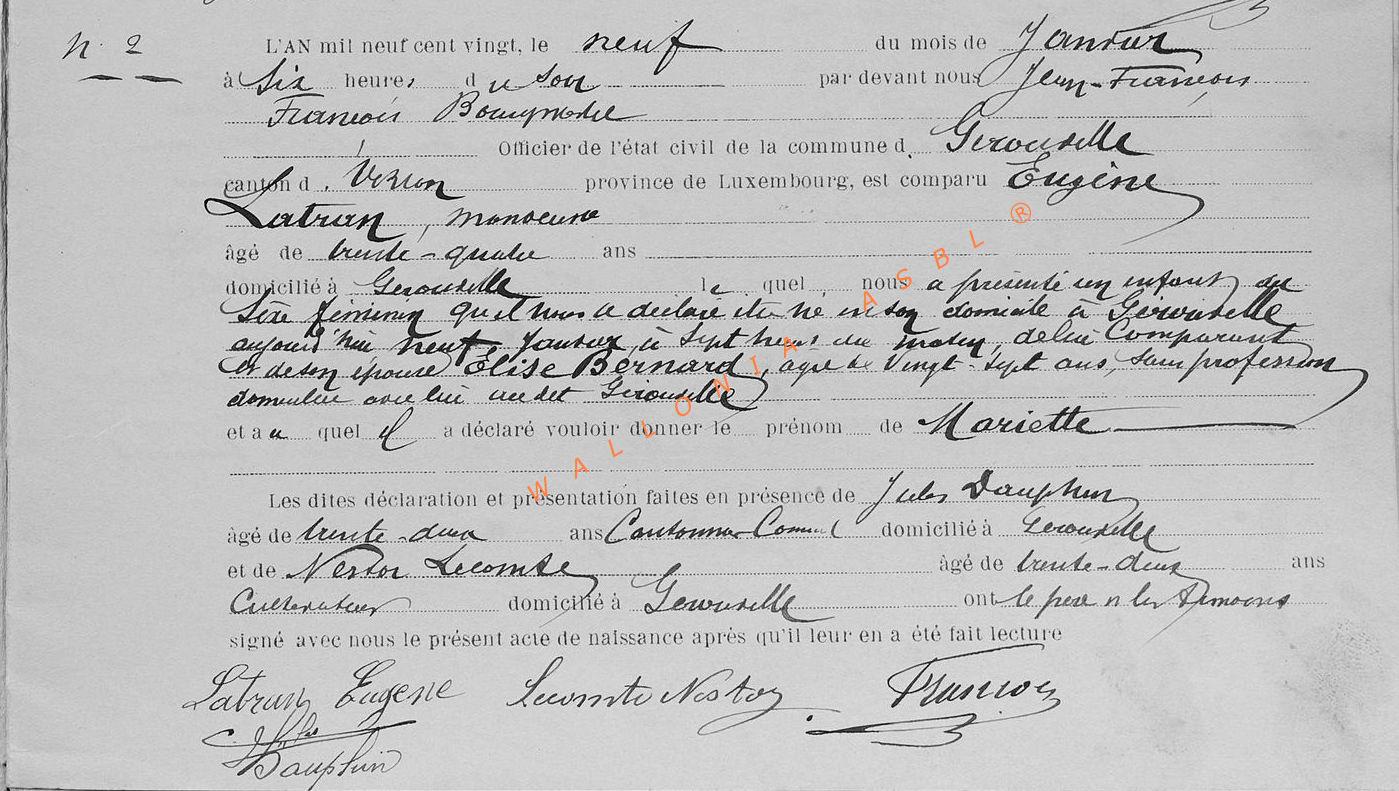 N. 2
L'AN mil neuf cent vingt, le neuf du mois de Janvier
à Six heures du soir par devant nous Jean-François
François Bourgmestre
Officier de l'état civil de la commune d. Gérouville
canton d. Virton province de Luxembourg, est comparu Eugène
Latran, manoeuvre
âgé de trente-quatre ans
domicilié à Gérouville le quel nous a présenté un enfant du
Sexe féminin qu'il nous a déclaré être né en son domicile à Gérouville
aujourd'hui neuf Janvier à sept heures du matin, de lui Comparant
et de son épouse Elise Bernard, agée de Vingt-sept ans, sans profession
domiciliée avec lui audit Gérouville
et au quel il a déclaré vouloir donner le prénom de Mariette
Les dites déclaration et présentation faites en présence de Jules Dauphin
âgé de trente-deux ans Cantonnier Comm domicilié à Gérouville
et de Nestor Lecomte âgé de trente-deux ans
Cultivateur domicilié à Gérouville ont le père et les témoins
signé avec nous le présent acte de naissance après qu'il leur en a été fait lecture
Latran Eugene Lecomte Nestor François
Jules
Dauphin
WALLONIA ASBL ®